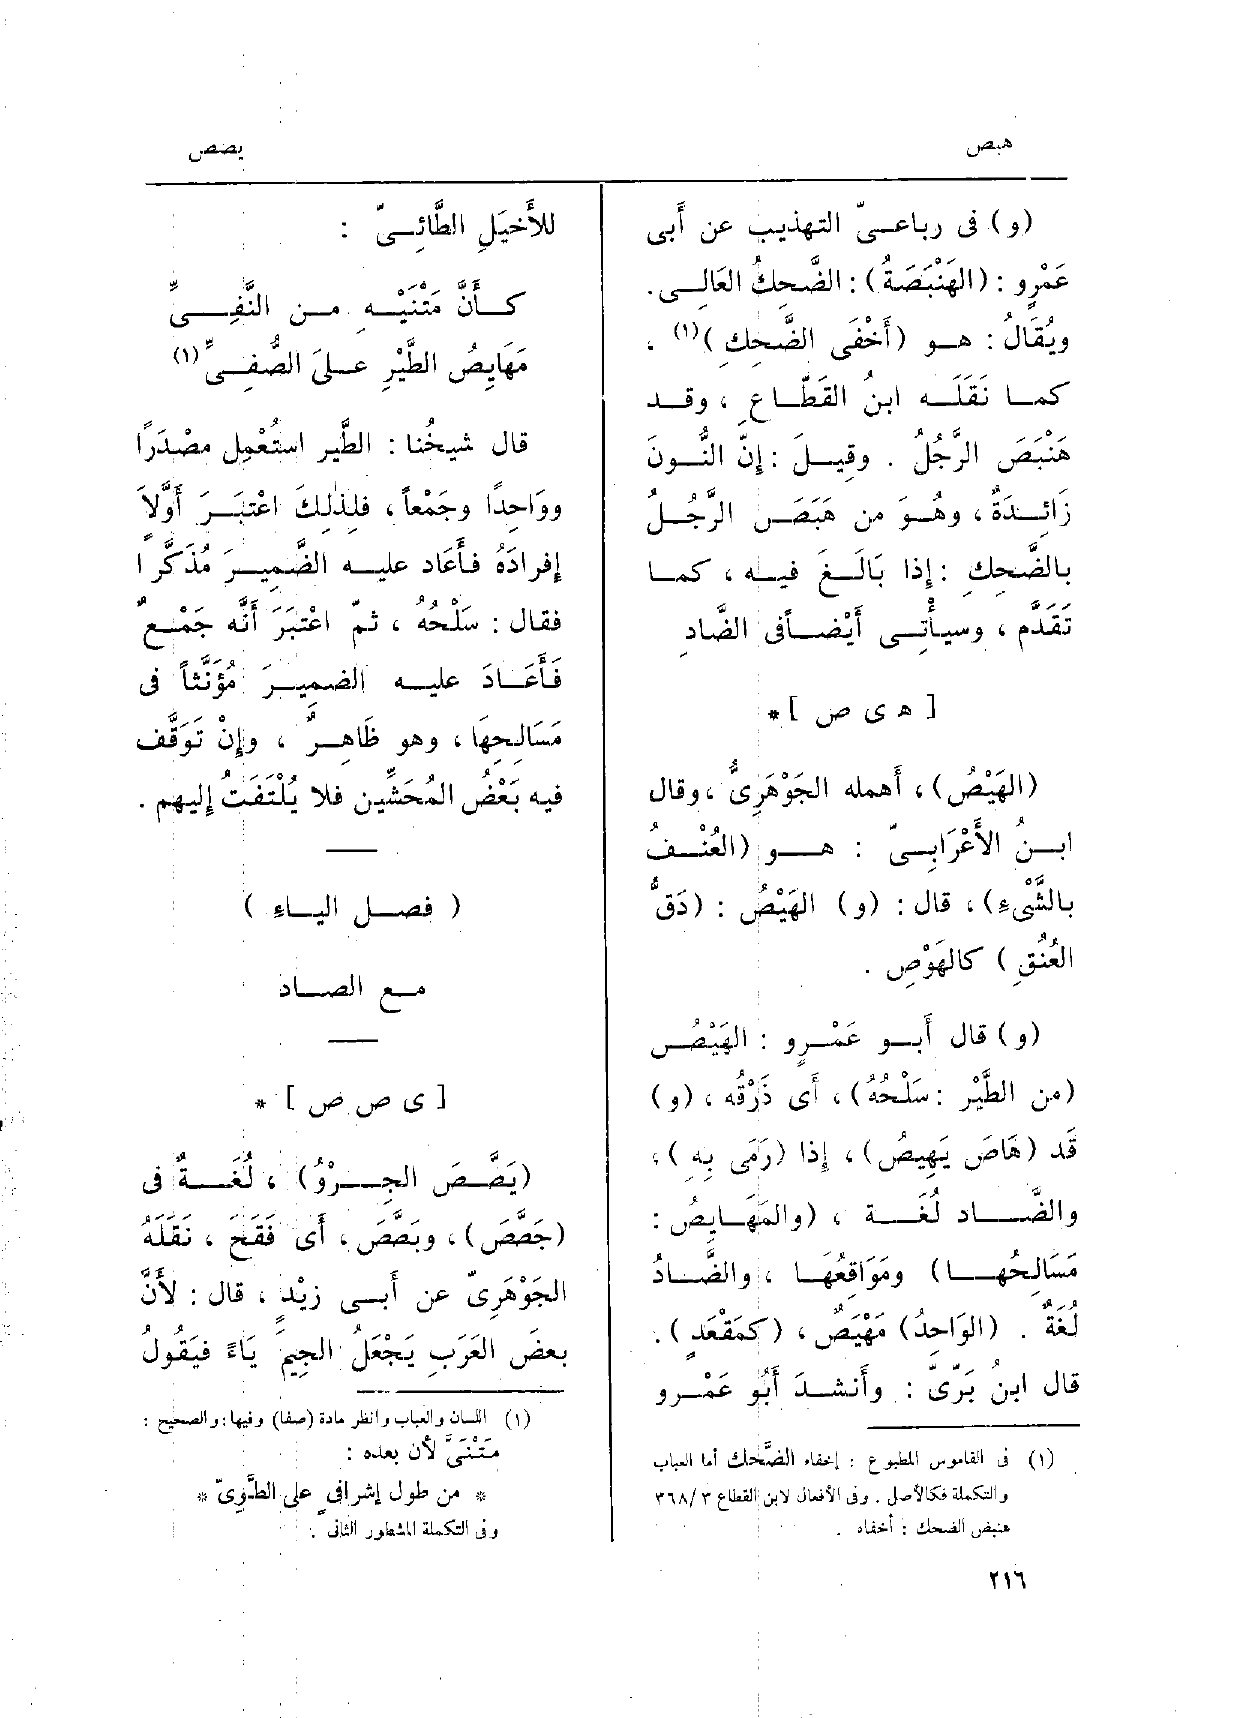 هبص
يصص
(و) فى رباعىّ التهذيب عن أَبى
عَمْرٍو : (الهَنْبَصَةُ) : الضَّحِكُ العَالِى.
ويُقَالُ : هو (أَخْفَى الضَّحِكِ)(١) ،
كما نَقَلَه ابنُ القَطَّاعِ ، وقد
هَنْبَصَ الرَّجُلُ . وقيلَ : إِنّ النُّونَ
زَائِدَةٌ ، وهُوَ من هَبَصَ الرَّجُلُ
بالضَّحِكِ : إِذا بَالَغَ فيه ، كما
تَقَدَّم ، وسيأْتى أَيْضاً فى الضَّادِ
[ ه ى ص ] *
(الهَيْصُ) ، أَهمله الجَوْهَرِىُّ ، وقال
ابنُ الأَعْرَابىّ : هو (العُنْفُ
بالشَّىْءِ) ، قال : (و) الهَيْصُ : (دَقُّ
العُنُقِ) كالهَوْصِ .
(و) قال أَبو عَمْرٍو : الهَيْصُ
(من الطَّيْرِ : سَلْحُهُ) ، أَى ذَرْقُه ، (و)
قَد (هَاصَ يَهِيصُ) ، إِذا (رَمَى بِهِ) ،
والضَّاد لُغَة ، (والمَهَايِصُ :
مَسَالِحُهَا) ومَوَاقِعُهَا ، والضَّادُ
لُغَةٌ . (الوَاحِدُ) مَهْيَصٌ ، (كمَقْعَدٍ) .
قال ابنُ بَرّىّ : وأَنشدَ أَبُو عَمْرٍو
(١) فى القاموس المطبوع : إخفاء الضَّحك أما العباب
والتكملة فكالأصل . وفى الأفعال لابن القطاع ٣/ ٣٦٨
هنبض الضحك : أخفاه .
للأَخيَلِ الطَّائِىّ :
كأَنَّ مَتْنَيْهِ من النَّفِىِّ
مَهَايِصُ الطَّيْرِ علَى الصُّفِىِّ(١)
قال شيخُنا : الطَّير استُعْمِل مصْدَرًا
ووَاحِدًا وجَمْعاً ، فلِذٰلِكَ اعْتَبَرَ أَوَّلاً
إِفرادَهُ فأَعَاد عليه الضَّمِيرَ مُذَكَّرًا
فقال : سَلْحُهُ ، ثمّ اعْتَبَرَ أَنَّه جَمْعٌ
فَأَعَادَ عليه الضميرَ مُؤَنَّثاً فى
مَسَالِحِهَا ، وهو ظَاهِرٌ ، وإِنْ تَوَقَّف
فيه بَعْضُ المُحَشِّين فلا يُلْتَفَتُ إِليهم .
( فصل الياء )
مع الصاد
[ ى ص ص ] *
(يَصَّصَ الجِرْوُ) ، لُغَةٌ فى
(جَصَّصَ) ، وبَصَّصَ ، أَى فَقَحَ ، نَقَلَهُ
الجَوْهَرِىّ عن أَبى زيْدٍ ، قال : لأَنَّ
بعضَ العَرَبِ يَجْعَلُ الجِيمَ يَاءً فيَقُولُ
(١) اللسان والعباب وانظر مادة (صفا) وفيها : والصحيح :
مَتْنَىَّ لأن بعده :
* من طول إشرافى على الطَّوِىّ *
وفى التكملة المشطور الثانى .
٢١٦